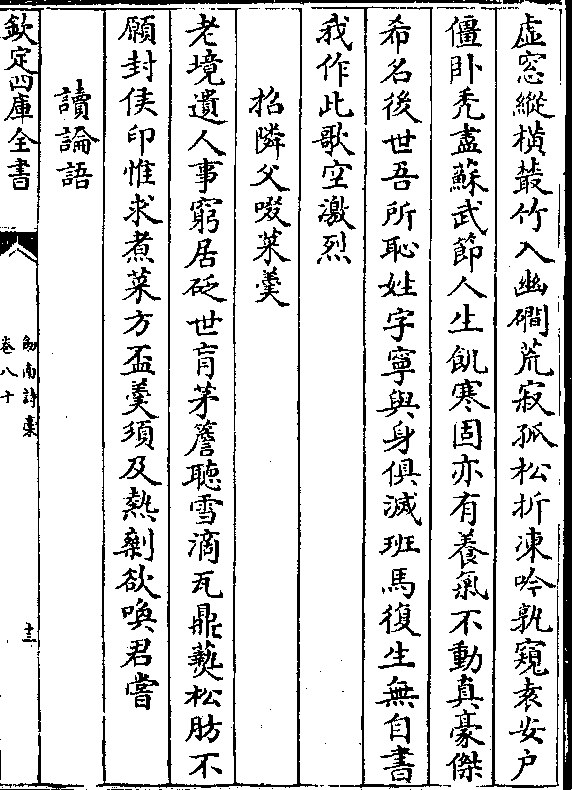 虚窓縱橫叢竹入幽磵荒寂孤松折凍吟孰窺袁安戶
僵卧秃盡蘇武節人生飢寒固亦有養氣不動真豪傑
希名後世吾所恥姓字寧與身俱滅班馬復生無自書
我作此歌空激烈
招隣父啜菜羹
老境遺人事窮居砭世肓茅簷聽雪滴瓦鼎爇松肪不
願封侯印惟求煮菜方盃羹須及熱剰欲喚君嘗
讀論語
欽定四庫全書
劒南詩稾
卷八十
十三